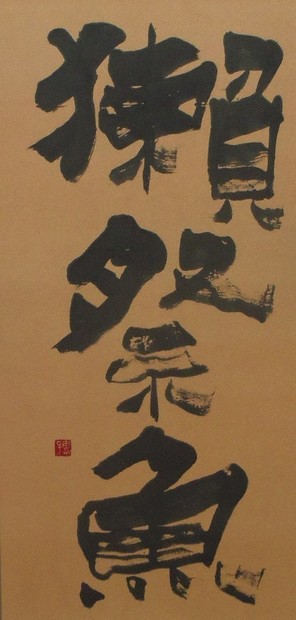 獺祭魚